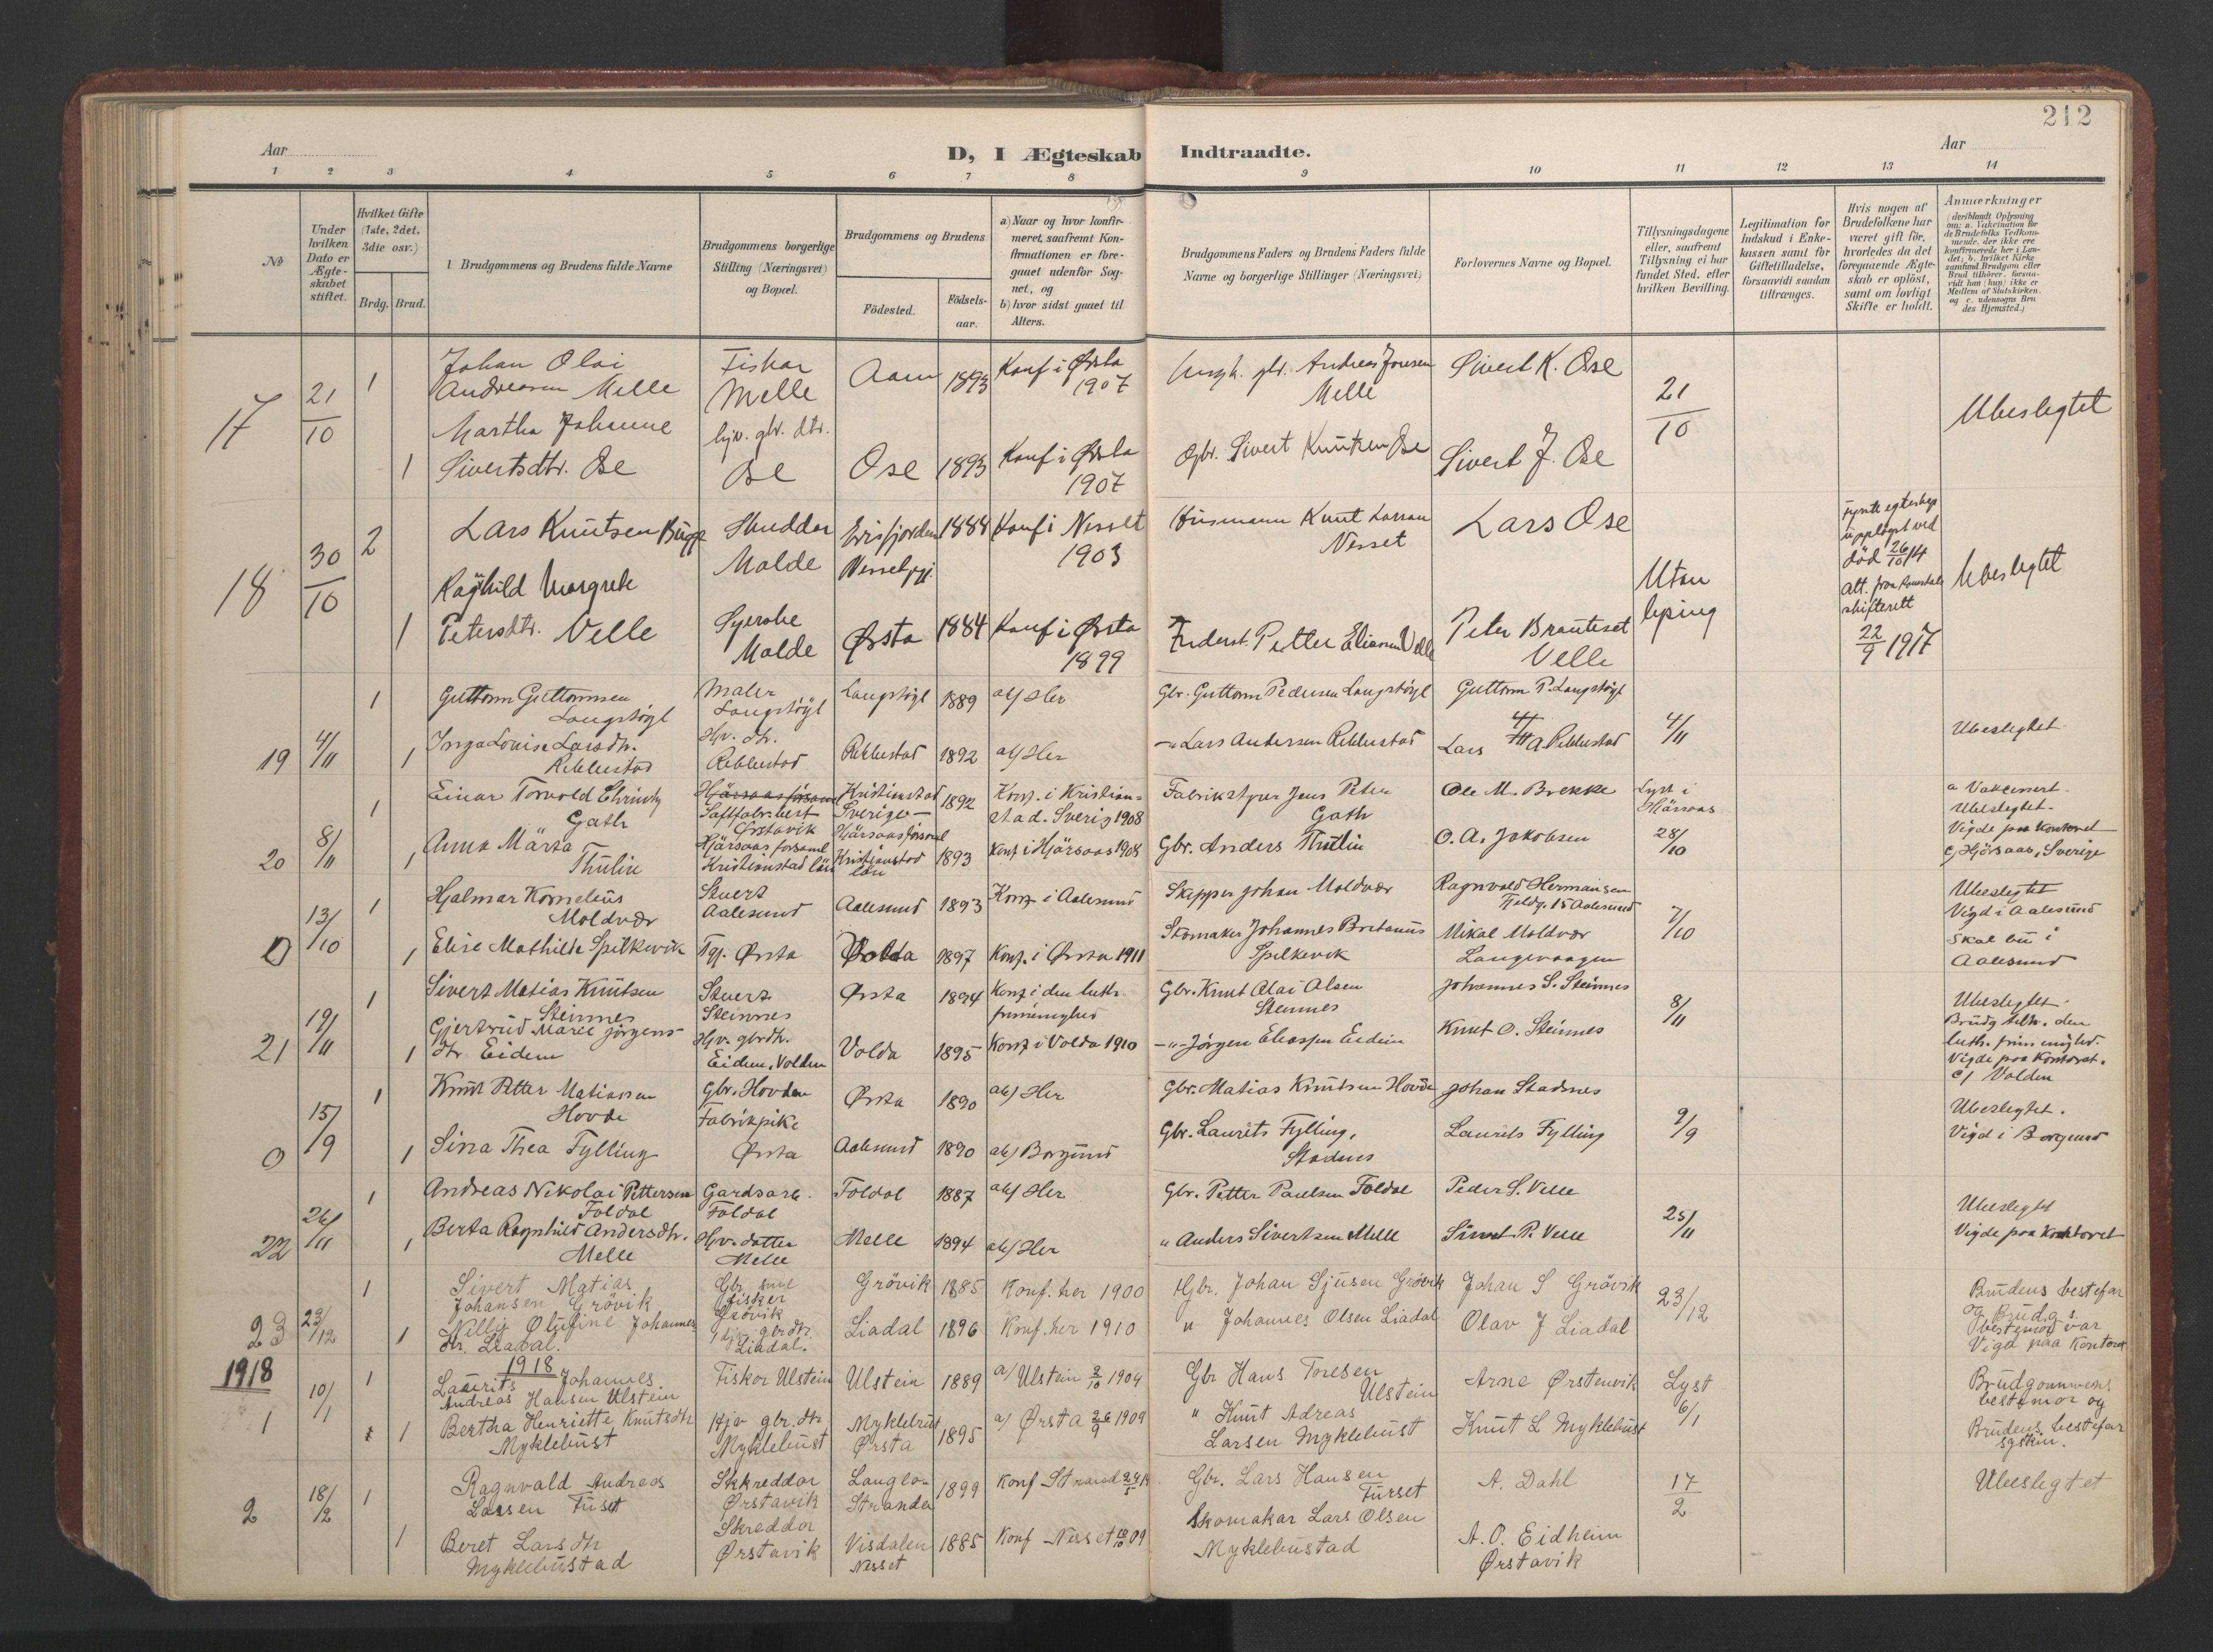 212
Aar
D, I Ægteskab Indtraadte.
Aar
1 2 3 4 5 6 7 8 9 10 11 12 13 14
No
Under hvilken Dato er Ægte-skabet stiftet.
Hvilket Gifte (1ste, 2det. 3die osv.)
Brdg. Brud.
Brudgommens og Brudens fulde Navne
Brudgommens borgerlige Stilling (Næringsvei) og Bopæl.
Brudgommens og Brudens
Födested.
Födsels-aar.
a) Naar og hvor konfir-
meret, saafremt Kon-
firmationen er fore-
gaaet udenfor Sog-
net, og
b) hvor sidst gaaet til
Alters.
Brudgommens Faders og Brudens Faders fulde
Navne og borgerlige Stillinger (Næringsvei)
Forlovernes Navne og Bopæl.
Tillysningsdagene
eller, saafremt
Tillysning ei har
fundet Sted, efter
hvilken Bevilling.
Legitimation for
Indskud i Enke-
kassen samt for
Giftetilladelse,
forsaavidt saadan
tiltrænges.
Hvis nogen af
Brudefolkene har
været gift för,
hvorledes da det
foregaaende Ægte-
skab er oplöst,
samt om lovligt
Skifte er holdt.
Anmærkninger
(deriblandt Oplysning
om: a. Vakcination for
de Brudefolks Vedkom-
mende, der ikke ere
konfirmerede her i Lan-
det; b. hvilket Kirke
samfund Brudgom eller
Brud tilhører, forsaa-
vidt han (hun) ikke er
Medlem af Statskirken.
og c. udensogns Bru
des Hjemsted.)
17 21/10 1 Johan Olai Andreasen Melle Fiskar Melle Aam 1893 Konf i Ørsta 1907 Andreas Jonsen Melle Sivert K. Ose 21/10 Ubeslegtet
1 Martha Johanne Sivertsdtr. Ose hjv. gbr. dtr. Ose Ose 1893 Konf i Ørsta 1907 Gbr. Sivert Knutsen Ose Sivert J. Ose
18 30/10 2 Lars Knutsen Bugge Skuddar Molde Erisfjorden Nesset pgj. 1884 Konf i Nesset 1903 Husmann Knut Larsen Nesset Lars Ose Utan lysing
fyrste egteskap upployst ved död 26/10 14 att. fraa Romsdals skifterett 22/9 1917 Ubeslegtet
1 Ragnhild Margrete Petersdtr. Velle Syerske Molde Ørsta 1884 Konf i Ørsta 1899 Inderst. Petter Eliassen Velle Peter Brauteset Velle
19 4/11 1 Guttorm Guttormsen Langstöyl Maler Langstöyl Langstöyl 1889 ab/ Her Gbr. Guttorm Pedersen Langstöyl Guttorm P. Langstöyl 4/11 Ubeslegtet
1 Inga Louise Larsdtr. Rebbestad Hjv. dtr. Rebbestad Rebbestad 1892 ab/ Her -"- Lars Andersen Rebbestad Lars A. Rebbestad
20 8/11 1 Einar Torvald Gath Saftfabr. best Ørstavik Kristianstad Sverige 1892 Konf. i Kristian=stad. Sverig 1908 Fabrikstyrer Jens Peter Gath Ole M. Brekke Lyst i Hjärsaas 28/10 a Vakcinert. Ubeslegtet. Vigde paa kontoret c/ Hjärsaas, Sverige
1 Anna Märta Thulin Hjärsaas forsaml Kristianstad län Hjärsaas forsaml Kristianstad län 1893 Konf i Hjärsaas 1908 Gbr. Anders Thulin O. A. Jakobsen
0 13/10 1 Hjalmar Kornelius Moldvær Stuert Aalesund Aalesund 1893 Konf i Aalesund Skipper Johan Moldvær Ragnvald Hermansen 15 Aalesund 7/10 Ubeslegtet Vigd i Aalesund Skal bu i Aalesund
1 Elise Mathilde Spilkevik Tgj. Ørsta Volda 1897 Konf. i Ørsta 1911 Skomaker Johannes Spilkevik Mikal Moldvær Langevaagen
21 19/11 1 Sivert Matias Knutsen Steinnes Stuert Steinnes Ørsta 1894 Konf i den luth. frimenighed Gbr. Knut Olai Olsen Steinnes Johannes S. Steinnes 8/11 Ubeslegtet. Brudg tilh. den luth. frimenighed. Vigde paa Kontoret. c/ Volden
1 Gjertrud Marie Jörgens-dtr Eidem Hjv. gbrdtr. Eidem, Volden Volda 1895 Konf i Volda 1910 -"- Jörgen Eliassen Eidem Knut O. Steinnes
0 15/9 1 Knut Petter Matiassen Hovde Gbr. Hovden Ørsta 1890 ab/ Her Gbr. Matias Knutsen Hovde Johan Stadsnes 9/9 Ubeslegtet. Vigd i Borgund
1 Sina Thea Fylling Fabrikpike Ørsta Aalesund 1890 ab/ Borgund Gbr. Laurits Fylling, Stadsnes Laurits Fylling
22 26/11 1 Andreas Nikolai Pettersen Foldal Gardsarb. Foldal Foldal 1887 ab/ Her Gbr. Petter Paulsen Foldal Peder S. Velle 25/11 Ubeslegtet Vigde paa Kontoret
1 Berta Ragnhild Andersdtr. Melle Hjv. datter Melle Melle 1894 ab/ Her " Anders Sivertsen Melle Sivert P. Velle
23 23/12 1 Sivert Matias Johansen Grövik Gbr. sme fisker Grövik Grövik 1885 Konf. her 1900 Gbr. Johan Sjusen Grövik Johan S Grövik 23/12 Brudens bestefar og Brudg.s. bestemor var Vigd paa Kontoret
1 Nilly Olufine Johannes dtr. Liadal. hjv. gbrdtr. Liadal. Liadal 1896 Konf. her 1910 " Johannes Olsen Liadal Olav J Liadal
1918 1918
1 10/1 1 Laurits Johannes Andreas Hansen Ulstein Fiskar Ulstein Ulstein 1889 a/ Ulstein 2/10 1904 Gbr Hans Toresen Ulstein Arne Ørstenvik Lyst 6/1 Brudgommens bestemor og Brudens bestefar syskin.
1 Bertha Henriette Knutsdtr Myklebust Hjv gbr. dtr Myklebust Myklebust Ørsta 1895 a/ Ørsta 26/9 1909 " Knut Adreas Larsen Myklebust Knut L Myklebust
2 18/2 1 Ragnvald Andreas Larsen Fuset Skreddar Ørstavik Stranda 1899 Konf Strand Gbr. Lars Hansen Furset A. Dahl 17/2 Ubeslegtet
1 Beret Larsdtr Myklebustad Skreddar Ørstavik Visdalen Nesset 1885 Konf Nesset Skomakar Lars Olsen Myklebustad A. O. Eidheim Ørstavik